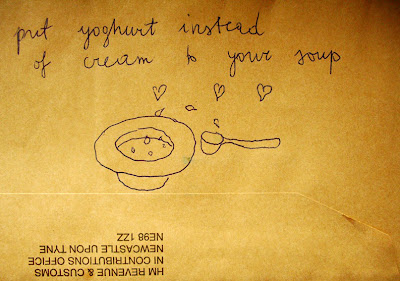 put yoghurt instead
of cream to your soup
HM REVENUE & CUSTOMS
NI CONTRIBUTIONS OFFICE
NEWCASTLE UPON TYNE
NE98 1ZZ